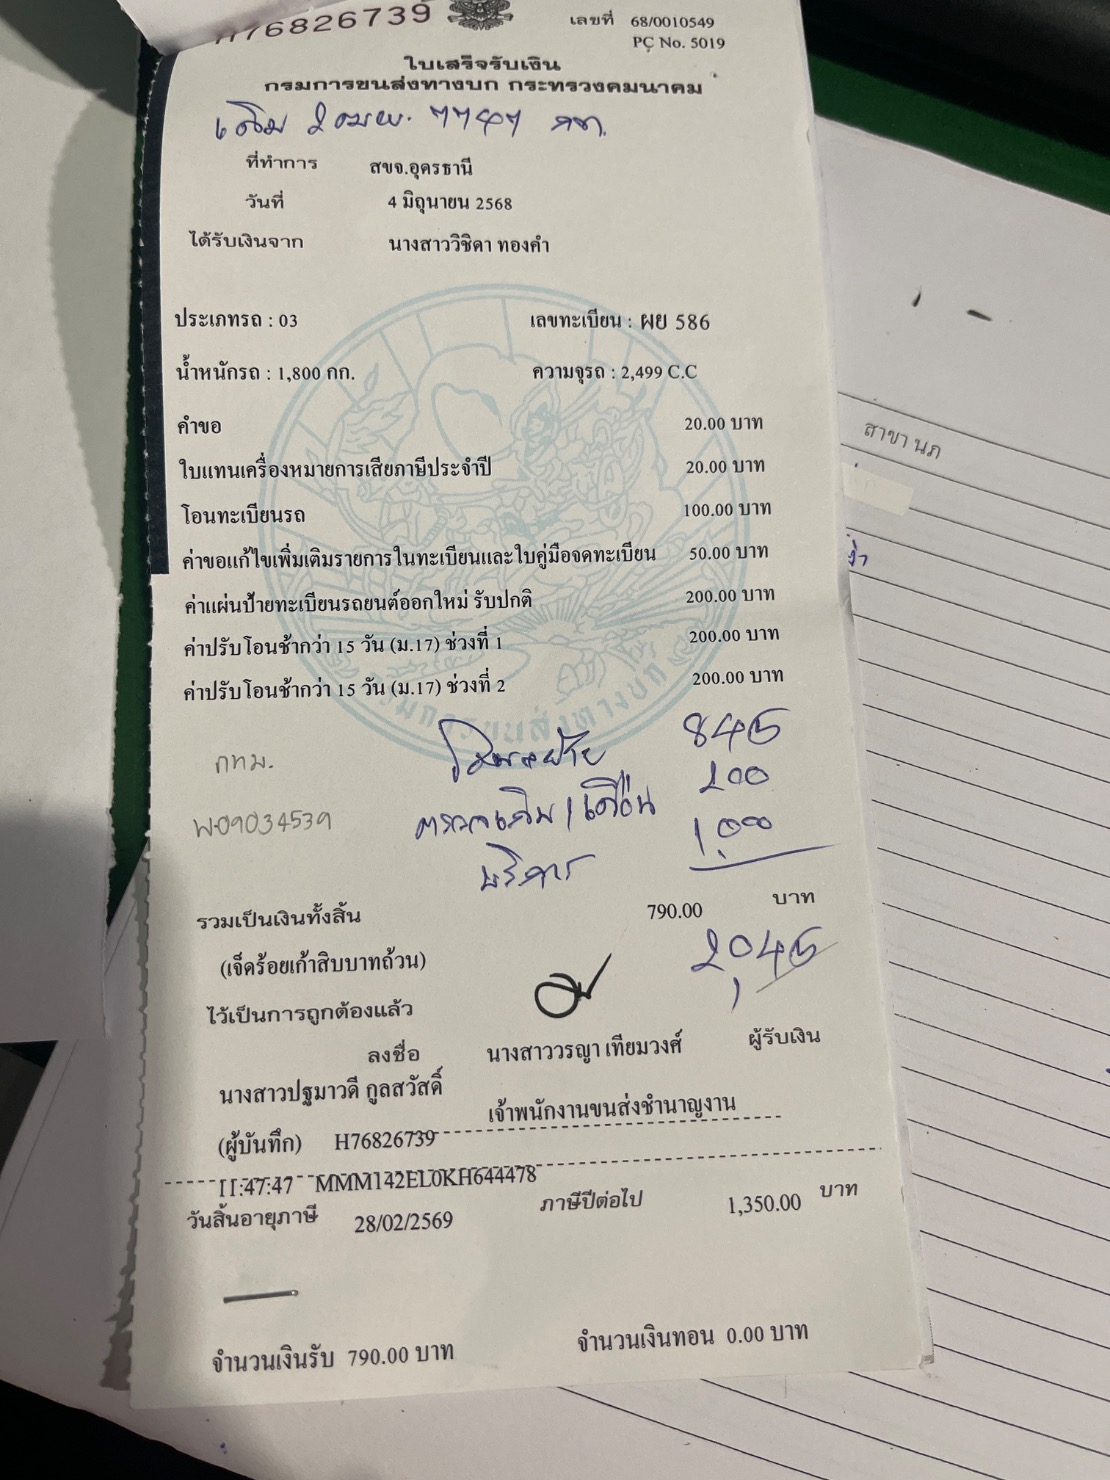 H76826739
เลขที่ 68/0010549
PC No. 5019
ใบเสร็จรับเงิน
กรมการขนส่งทางบก กระทรวงคมนาคม
เดิม 2
ที่ทำการ สขจ.อุดรธานี
วันที่ 4 มิถุนายน 2568
ได้รับเงินจาก นางสาววิชิดา ทองคำ
ประเภทรถ : 03 เลขทะเบียน : ผย 586
น้ำหนักรถ : 1,800 กก. ความจุรถ : 2,499 C.C
คำขอ 20.00 บาท
ใบแทนเครื่องหมายการเสียภาษีประจำปี 20.00 บาท
โอนทะเบียนรถ 100.00 บาท
ค่าขอแก้ไขเพิ่มเติมรายการในทะเบียนและใบคู่มือจดทะเบียน 50.00 บาท
ค่าแผ่นป้ายทะเบียนรถยนต์ออกใหม่ รับปกติ 200.00 บาท
ค่าปรับโอนช้ากว่า 15 วัน (ม.17) ช่วงที่ 1 200.00 บาท
ค่าปรับโอนช้ากว่า 15 วัน (ม.17) ช่วงที่ 2 200.00 บาท
กรมการขนส่งทางบก
845
กทม. 200
W09034539 ตรวจเดิม 1 เดือน 1,000
บริการ
รวมเป็นเงินทั้งสิ้น 790.00 บาท
(เจ็ดร้อยเก้าสิบบาทถ้วน) 2,045
ไว้เป็นการถูกต้องแล้ว
ลงชื่อ นางสาววรญา เทียมวงศ์ ผู้รับเงิน
นางสาวปฐมาวดี กูลสวัสดิ์ เจ้าพนักงานขนส่งชำนาญงาน
(ผู้บันทึก) H76826739
11:47:47 MMM142EL0KH644478
วันสิ้นอายุภาษี 28/02/2569 ภาษีปีต่อไป 1,350.00 บาท
จำนวนเงินรับ 790.00 บาท จำนวนเงินทอน 0.00 บาท
สาขา นภ